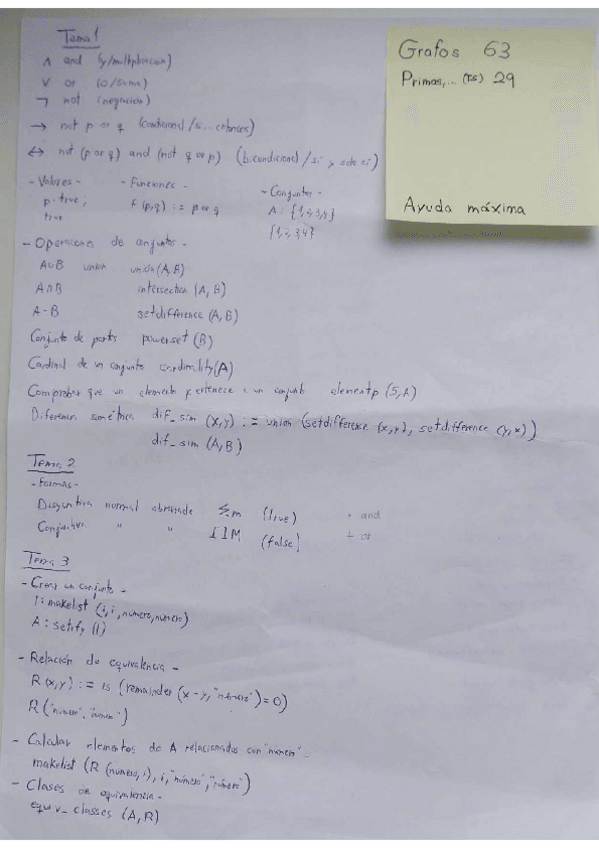 Tema 1
∧ and (y/multiplicacion)
∨ or (o/suma)
¬ not (negacion)
→ not p or q (condicional/si... entonces)
↔ not (p or q) and (not q or p) (bicondicional/si y solo si)
- Valores - - Funciones - - Conjuntos -
p: true; f(p,q) := p or q A: {1,2,3,4}
true {1,2,3,4}
- Operaciones de conjuntos -
A∪B union union(A,B)
A∩B intersection (A,B)
A-B setdifference (A,B)
Conjunto de partes powerset (B)
Cardinal de un conjunto cardinality(A)
Comprobar que un elemento pertenece a un conjunto elementp (5,A)
Diferencia simétrica dif_sim (x,y) := union (setdifference (x,y), setdifference (y,x))
dif_sim (A,B)
Tema 2
- Formas -
Disyuntiva normal abreviada Σm (true) · and
Conjuntiva " " ΠM (false) + or
Tema 3
- Crear un conjunto -
l: makelist (i,i,numero,numero)
A: setify (l)
- Relación de equivalencia -
R(x,y) := is (remainder (x-y,"número")=0)
R("numero","numero")
- Calcular elementos de A relacionados con "numero" -
makelist (R(numero,i),i,"número","número")
- Clases de equivalencia -
equiv_classes (A,R)
Grafos 63
Primos,... (TS) 29
Ayuda máxima